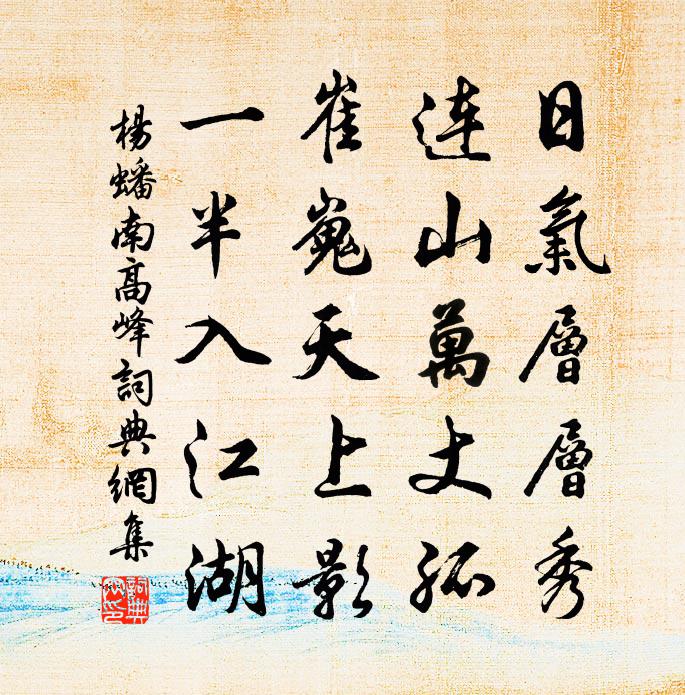 日氣層層秀
連山萬丈孤
崔嵬天上影
一半入江湖
楊蟠南高峰詞典網集